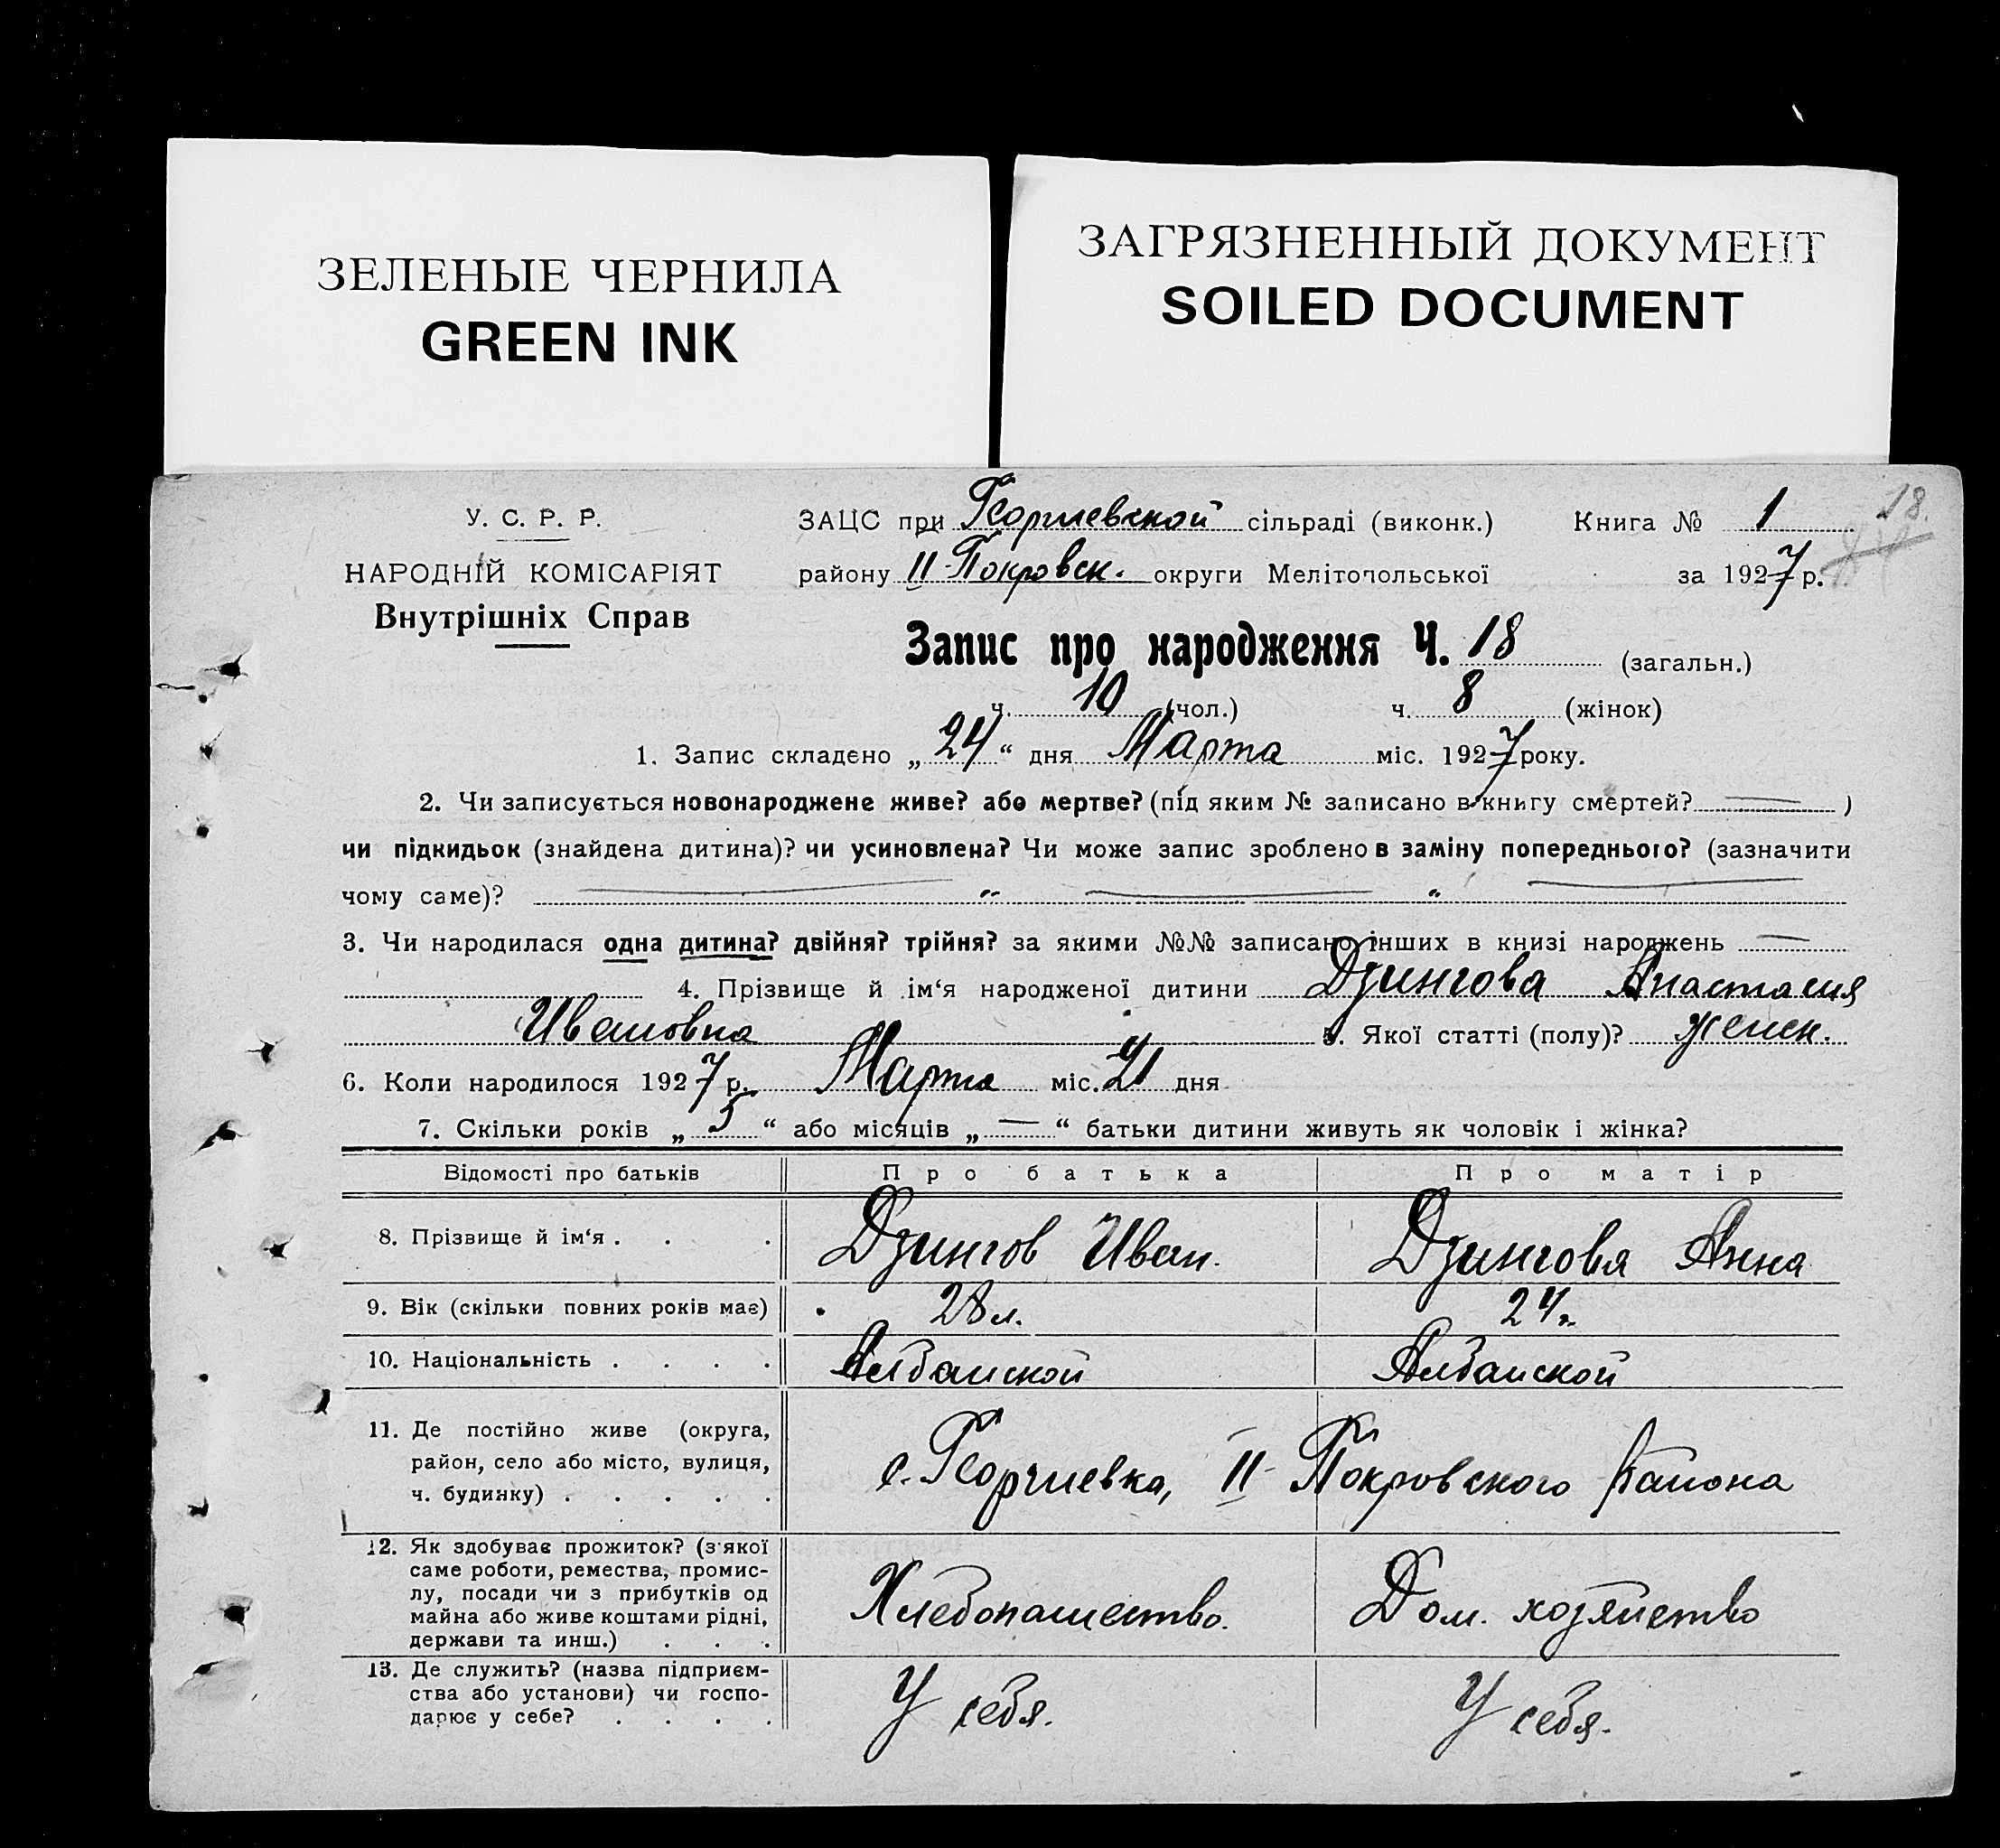 ЗЕЛЕНЫЕ ЧЕРНИЛА
GREEN INK
ЗАГРЯЗНЕННЫЙ ДОКУМЕНТ
SOILED DOCUMENT
18.
У. С. Р. Р.
НАРОДНІЙ КОМІСАРІЯТ
Внутрішніх Справ
ЗАЦС при Георгиевской сільраді (виконк.) Книга № 1
району II-Покровск. округи Мелітопольської за 1927 р.
Запис про народження Ч. 18 (загальн.)
ч. 10 (чол.) ч. 8 (жінок)
1. Запис складено „24“ дня Марта міс. 1927 року.
2. Чи записується новонароджене живе? або мертве? (під яким № записано в книгу смертей? — )
чи підкидьок (знайдена дитина)? чи усиновлена? Чи може запис зроблено в заміну попереднього? (зазначити
чому саме)? — „ — „ —
3. Чи народилася одна дитина? двійня? трійня? за якими №№ записано інших в книзі народжень —
4. Прізвище й ім‘я народженої дитини Дзингова Анастасия
Ивановна 5. Якої статті (полу)? женск.
6. Коли народилося 1927 р. Марта міс. 21 дня
7. Скільки років „5“ або місяців „—“ батьки дитини живуть як чоловік і жінка?
Відомості про батьків Про батька Про матір
8. Прізвище й ім‘я . . . Дзингов Иван. Дзингова Анна
9. Вік (скільки повних років має) 28 л. 24 л.
10. Національність . . . . Албанской Албанской
11. Де постійно живе (округа,
район, село або місто, вулиця,
ч. будинку) . . . . .
с. Георгиевка, II-Покровского района
12. Як здобуває прожиток? (з'якої
саме роботи, ремества, промис-
лу, посади чи з прибутків од
майна або живе коштами рідні,
держави та инш.) . . .
Хлебопашество. Дом. хозяйство
13. Де служить? (назва підприєм-
ства або установи) чи госпо-
дарює у себе? . . . .
У себя. У себя.